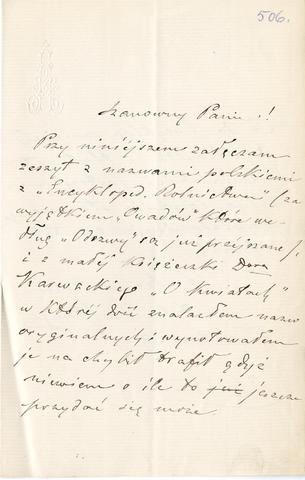 506.
Szanowny Panie !!
Przy niniejszem załączam
zeszyt z nazwami polskiemi
z „Encyklopd. Rolnictwa" (za
wyjątkiem „Owadów" które we-
dług „Odezwy" są już przejrzane),
i z małej książeczki
Karwackiego „O Kwiatach"
w której dość znalazłem nazw
oryginalnych i wynotowałem
je na chybił trafił gdyż
niewiem o ile to już jeszcze
przydać się może.